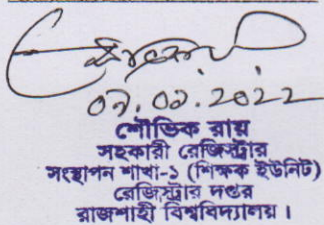 ০৭.০৯.২০২২
শৌভিক রায়
সহকারী রেজিস্ট্রার
সংস্থাপন শাখা-১ (শিক্ষক ইউনিট)
রেজিস্ট্রার দপ্তর
রাজশাহী বিশ্ববিদ্যালয়।